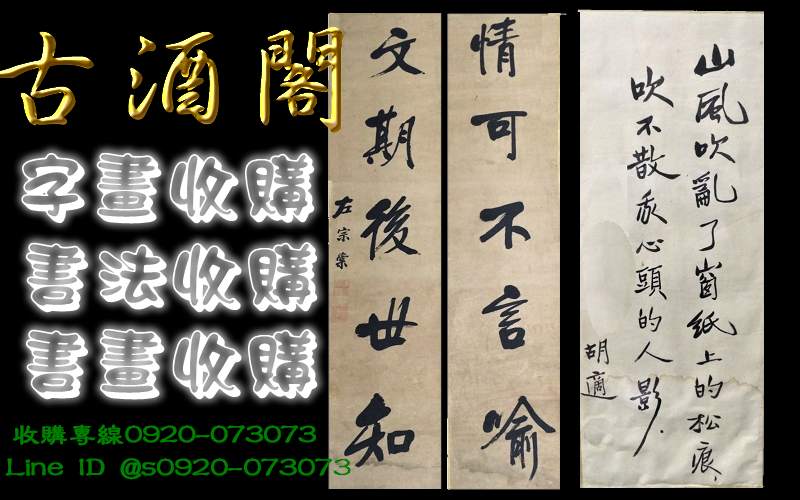 古酒閣
字畫收購
書法收購
書畫收購
收購專線0920-073073
Line ID @s0920-073073
情可不言喻
文期後世知
左宗棠
山風吹亂了窗紙上的松痕，
吹不散我心頭的人影.
胡適